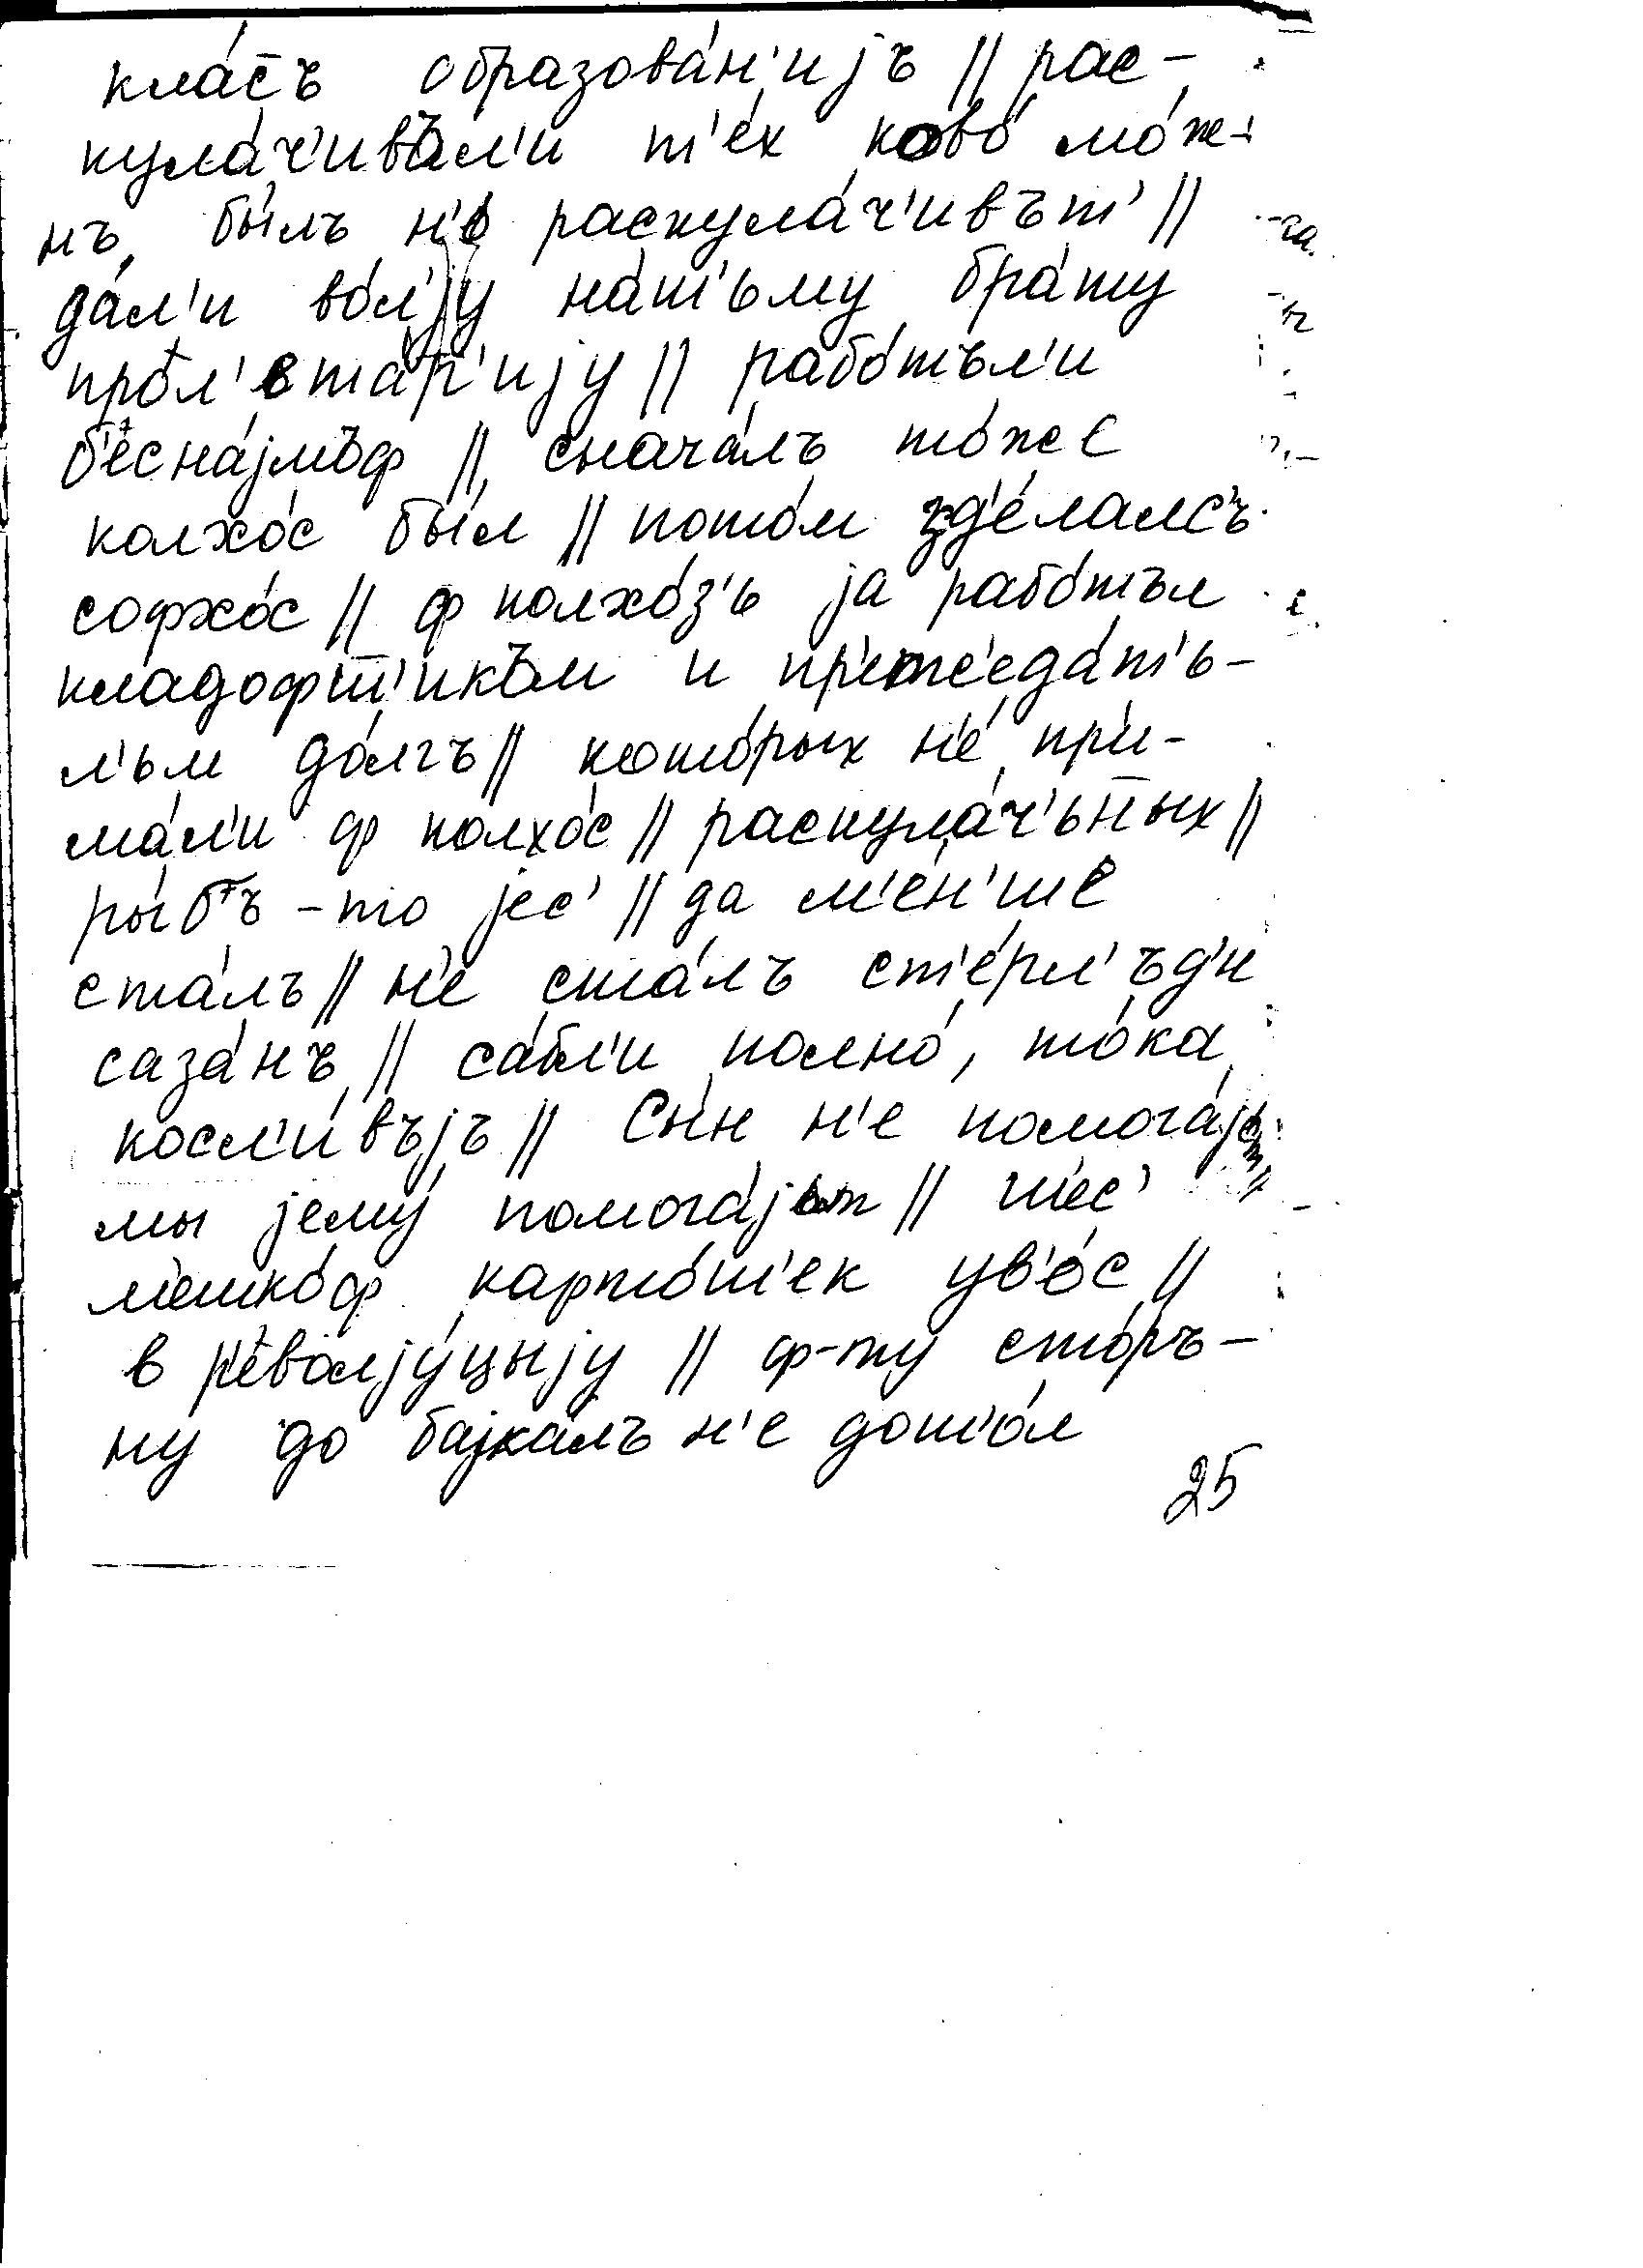 кла́с̄ъ образова́н'иjъ // рас-
кула́ч'ивъл'и т'е́х ково́ мо́ж-
нъ бы́лъ н'е раскула́ч'ивът' //
да́л'и во́л'jу на́шъму бра́ту
прол'ета́р'иjу // рабо́тъл'и
б'есна́jмъф // снача́лъ то́же
колхо́с бы́л // пото́м зд'е́лалсъ
софхо́с // ф колхо́з'ь jа рабо́тъл
кладофш̄'икъм и пр'итс'еда́т'ь-
л'ьм до́лгъ // кото́рых н'е́ при-
ма́л'и ф колхо́с // раскула́ч'ьн̄ых //
ры́бъ-то jес' // да м'е́н'ше
ста́лъ // н'е ста́лъ ст'е́рл'ъд'и
саза́нъ // са́бл'и полно́, то́ка
косл'и́въjъ // Сы́н н'е помога́jьт //
мы jему́ помога́jьм // ше́с'
мешко́ф карто́ш'ек ув'о́с //
в р'еволjу́цыjу // ф-ту сто́ръ-
ну до баjка́лъ н'е дошо́л
25